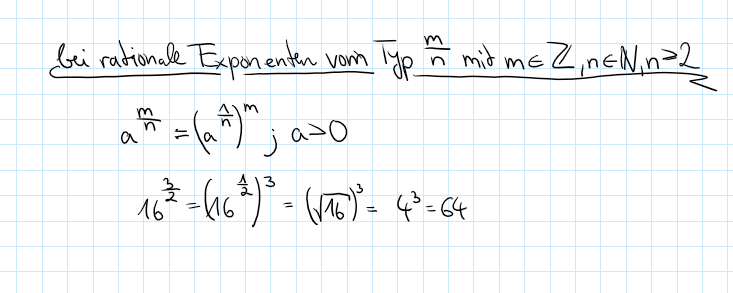 bei rationale Exponenten vom Typ m/n mit m∈ℤ, n∈ℕ, n≥2
a^(m/n) = (a^(1/n))^m ; a>0
16^(3/2) = (16^(1/2))^3 = (√16)^3 = 4^3 = 64